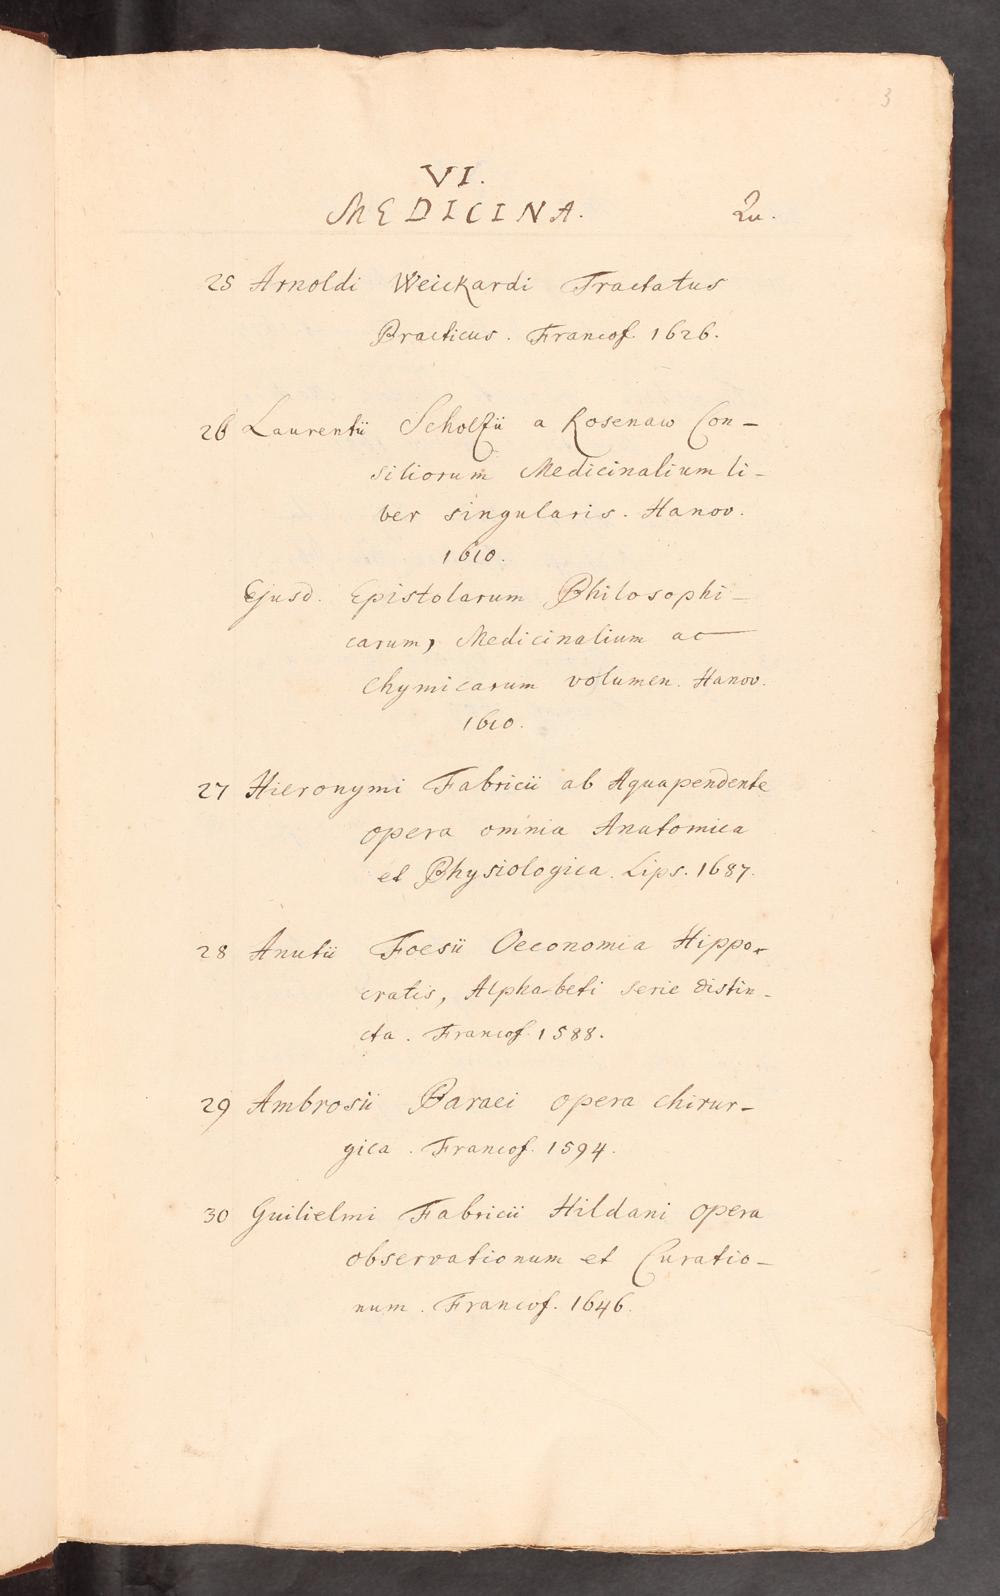 3
VI.
MEDICINA. Qu.
25 Arnoldi Weickardi Tractatus
Practicus. Francof. 1626.
26 Laurentii Scholtzii a Rosenaw Con-
siliorum Medicinalium li-
ber singularis. Hanov.
1610.
Ejusd. Epistolarum Philosophi-
carum, Medicinalium ac
Chymicarum volumen. Hanov.
1610.
27 Hieronymi Fabricii ab Aquapendente
opera omnia Anatomica
et Physiologica. Lips. 1687.
28 Anutii Foesii Oeconomia Hippo-
cratis, Alphabeti serie distin-
cta. Francof. 1588.
29 Ambrosii Paraei opera chirur-
gica. Francof. 1594.
30 Guilielmi Fabricii Hildani opera
observationum et Curatio-
num. Francof. 1646.